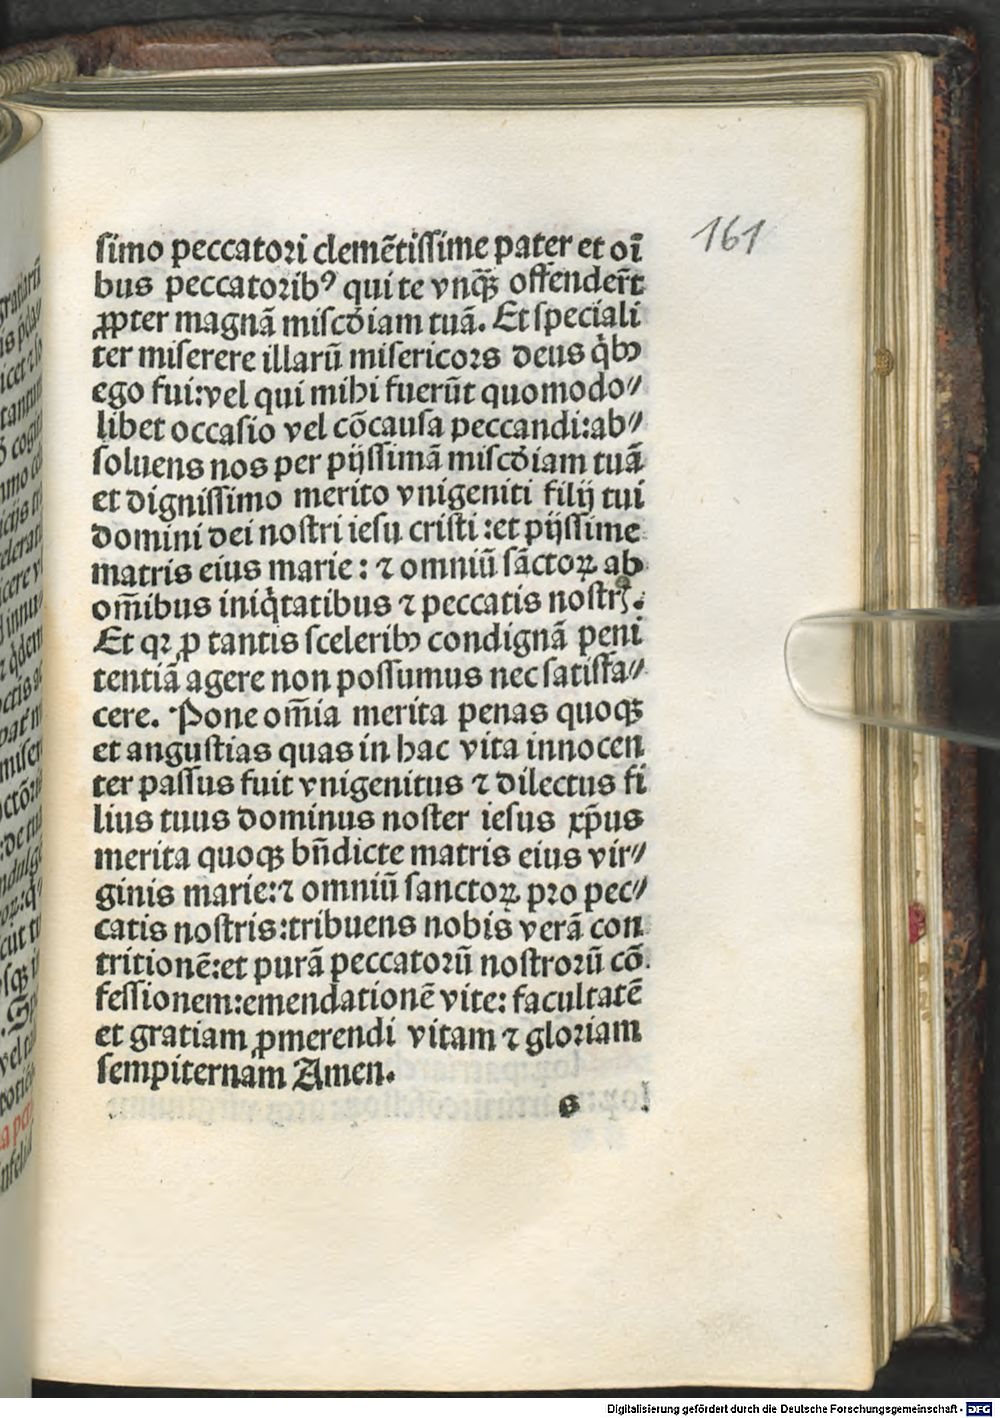 161
ſimo peccatoꝛi clemẽtiſſime pater et oĩ
bus peccatoꝛibꝰ qui te vnꝗ̃ʒ offenderũt
ꝓpter magnã miſcꝺ̄iam tuã. Et ſpeciali
ter miſerere illarũ miſericoꝛs deus q̇bꝫ
ego fui:vel qui mihi fuerũt quomodo⸗
libet occaſio vel cõcauſa peccandi:ab⸗
ſoluens nos per pijſſimã miſcꝺ̄iam tuã
et digniſſimo merito vnigeniti filij tui
domini dei noſtri ieſu criſti:et pijſſime
matris eius marie: ⁊ omniũ ſãctoꝝ ab
om̃ibus iniq̇tatibus ⁊ peccatis noſtrꝭ.
Et qꝛ ꝓ tantis ſceleribꝫ condignã peni
tentiã agere non poſſumus nec ſatiſfa⸗
cere. Pone om̃ia merita penas quoqꝫ
et anguſtias quas in hac vita innocen
ter paſſus fuit vnigenitus ⁊ dilectus fi
lius tuus dominus noſter ieſus xp̃us
merita quoqꝫ bñdicte matris eius vir⸗
ginis marie:⁊ omniũ ſanctoꝝ pꝛo pec⸗
catis noſtris:tribuens nobis verã con
tritionẽ:et purã peccatoꝛũ noſtroꝛũ cõ
feſſionem:emendationẽ vite: facultatẽ
et gratiam ꝓmerendi vitam ⁊ gloꝛiam
ſempiternam Amen.
s
Digitalisierung gefördert durch die Deutsche Forschungsgemeinschaft - DFG